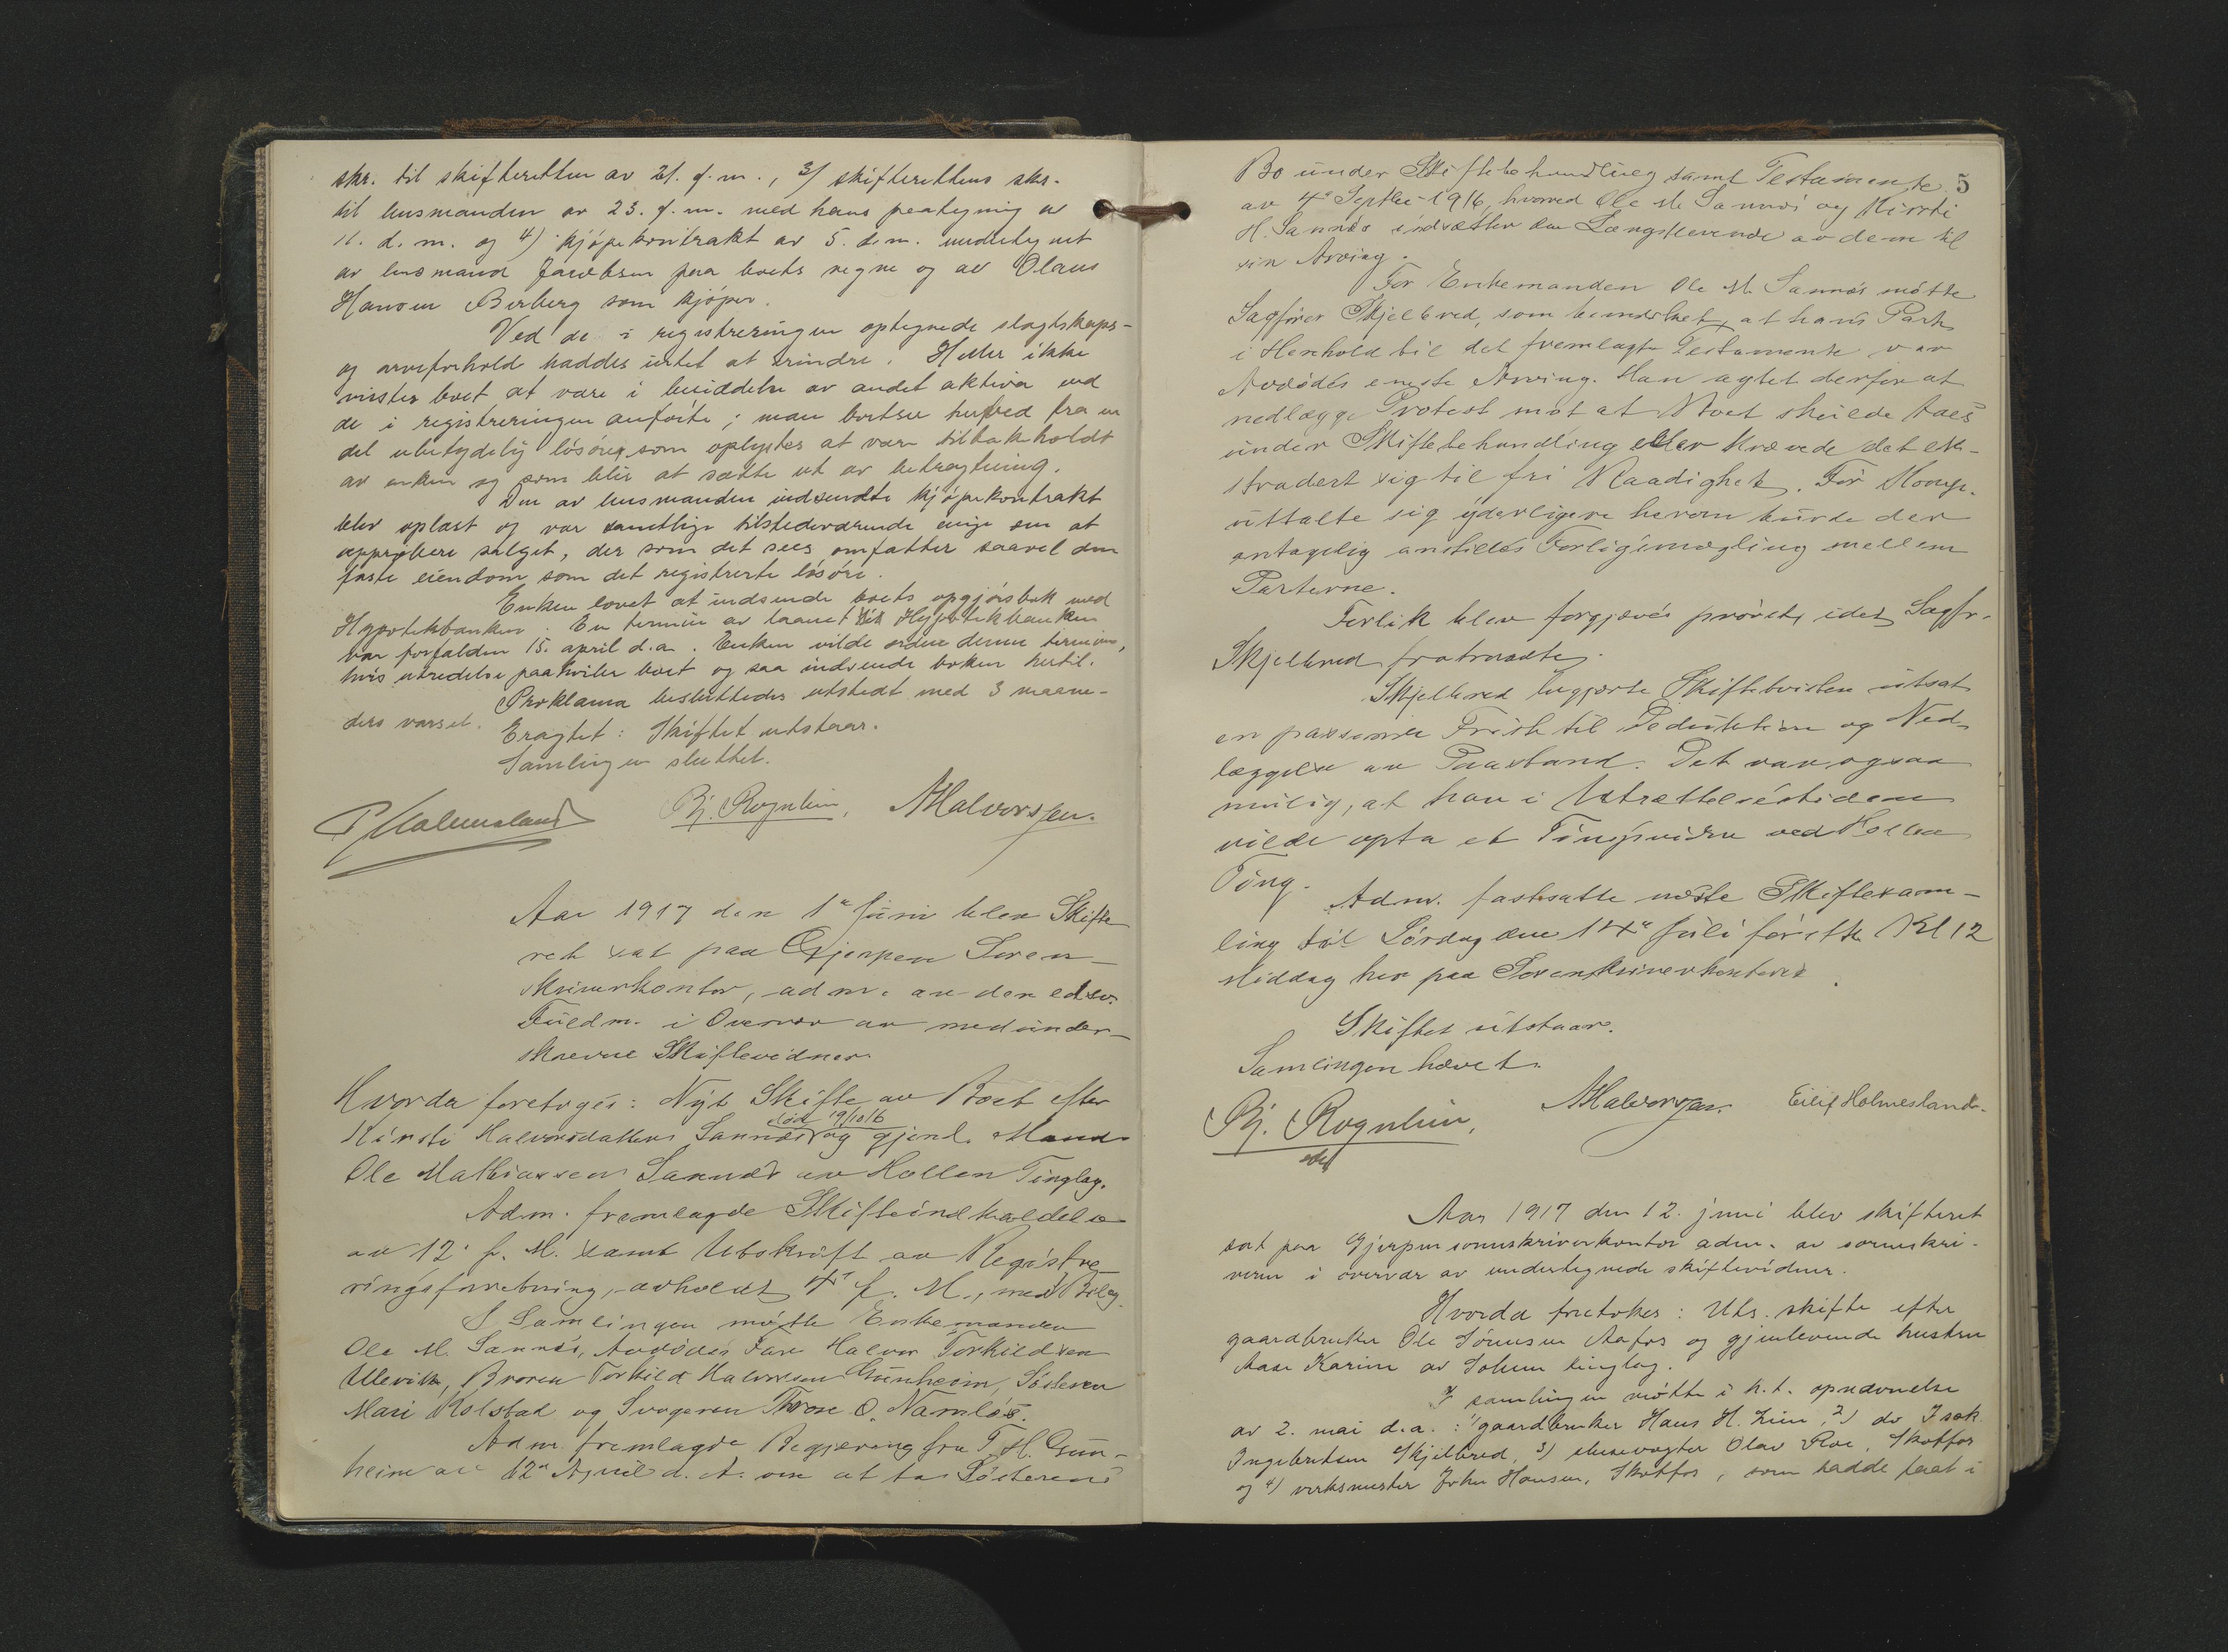 skr. til skifteretten av 21. f. m., 3) skifterettens skr.
til lensmanden av 23. f. m. med hans paategning av
11. d. m. og 4) kjøpekontrakt av 5. d. m. undertegnet
av lensmand Jacobsen paa boets vegne og av Olaus
Hansen Berberg som kjøper.
Ved de i registreringen optegnede slegtskaps-
og arveforhold haddes intet at erindre. Heller ikke
visstes boet at være i besiddelse av andet aktiva end
de i registreringen anførte; man bortser herved fra en
del ubetydelig løsøre, som oplystes at være tilbakeholdt
av enken og som blir at sætte ut av betragtning.
Den av lensmanden indsendte kjøpekontrakt
blev oplæst og var samtlige tilstedeværende enige om at
approbere salget, der som det sees omfatter saavel den
faste eiendom som det registrerte løsøre.
Enken lovet at indsende boets opgjørsbok med
Hypotekbanken. En termin av laanet til Hypotekbanken
var forfalden 15. april d.a. Enken vilde ordne denne termin,
hvis utredelse paahviler boet og saa indsende boken hertil.
Proklama besluttedes utstedt med 3 maane-
ders varsel.
Eragtet: Skiftet utstaar.
Samlingen sluttet.
P. Holmesland Bj. Rognlien, A Halvorsen.
Aar 1917 den 1ste Juni blev Skifte
ret sat paa Gjerpen Soren-
skriverkontor, adm. av den edsv.
Fuldm. i Overvær av medunder-
skrevne Skiftevidner.
Hvorda foretoges: Nyt Skifte av Boet efter
død 19/10 16
Kirsti Halvorsdatter Sannæs og gjenl. Mand
Ole Mathiassen Sannæs av Hollen Tinglag.
Adm. fremlagde Skifteindkaldelse
av 12. f. M. samt Utskrift av Registre-
ringsforretning, avholdt 4de f. M., med Bilag.
I Samlingen møtte Enkemanden
Ole M. Sannæs, Avdødes Far Halvor Torkildsen
Ullevik, Broren Torkild Halvorsen Gunheim, Søsteren
Mari Kolstad og Svogeren Throse O. Namløs.
Adm. fremlagde Begjæring fra T. H. Gun-
heim av 12te April d. A. om at ta Søsterens
5
Bo under Skiftebehandling samt Testamente
av 4de Septbr 1916, hvorved Ole M. Sannæs og Kirsti
H. Sannæs indsætter den Længstlevende av dem til
sin Arving.
For Enkemanden Ole M. Sannæs møtte
Sagfører Skjelbred, som bemerket, at hans Part
i Henhold til det fremlagte Testamente var
Avdødes eneste Arving. Han agtet derfor at
nedlægge Protest mot at Boet skulde taes
under Skiftebehandling eller krævede det ek-
stradert sig til fri Raadighet. Før Mange.
uttalte sig yderligere herom burde der
antagelig anstilles Forligsmægling mellem
Parterne.
Forlik blev forgjæves prøvet, idet Sagfr.
Skjelbred fratraadte.
Skjelbred begjærte Skiftetvisten utsat
en passende Frist til Deduktion og Ned-
læggelse av Paastand. Det var ogsaa
mulig, at han i Utsættelsestiden
vilde opta et Tingsvidne ved Hollen
Ting.
Adm. fastsatte næste Skiftesam-
ling til Lørdag den 14de Juli førstk. Kl 12
Middag her paa Sorenskriverkontoret.
Skiftet utstaar.
Samlingen hævet.
Bj. Rognlien, A Halvorsen. Eilif Holmesland.
Aar 1917 den 12. juni blev skifteret
sat paa Gjerpen sorenskriverkontor adm. av sorenskri-
veren i overvær av undertegnede skiftevidner.
Hvorda foretokes: Uts. skifte efter
gaardbruker Ole Sørensen Aafos og gjenlevende hustru
Aase Karine av Solum tinglag.
I samlingen møtte i h. t. opnævnelse
av 2. mai d.a.: 1) gaardbruker Hans H. Lien, 2) do Isak
Ingebretsen Skjelbred, 3) slusevogter Olav Roe, Skotfos
og 4) verksmester John Hansen, Skotfos, som hadde faat i